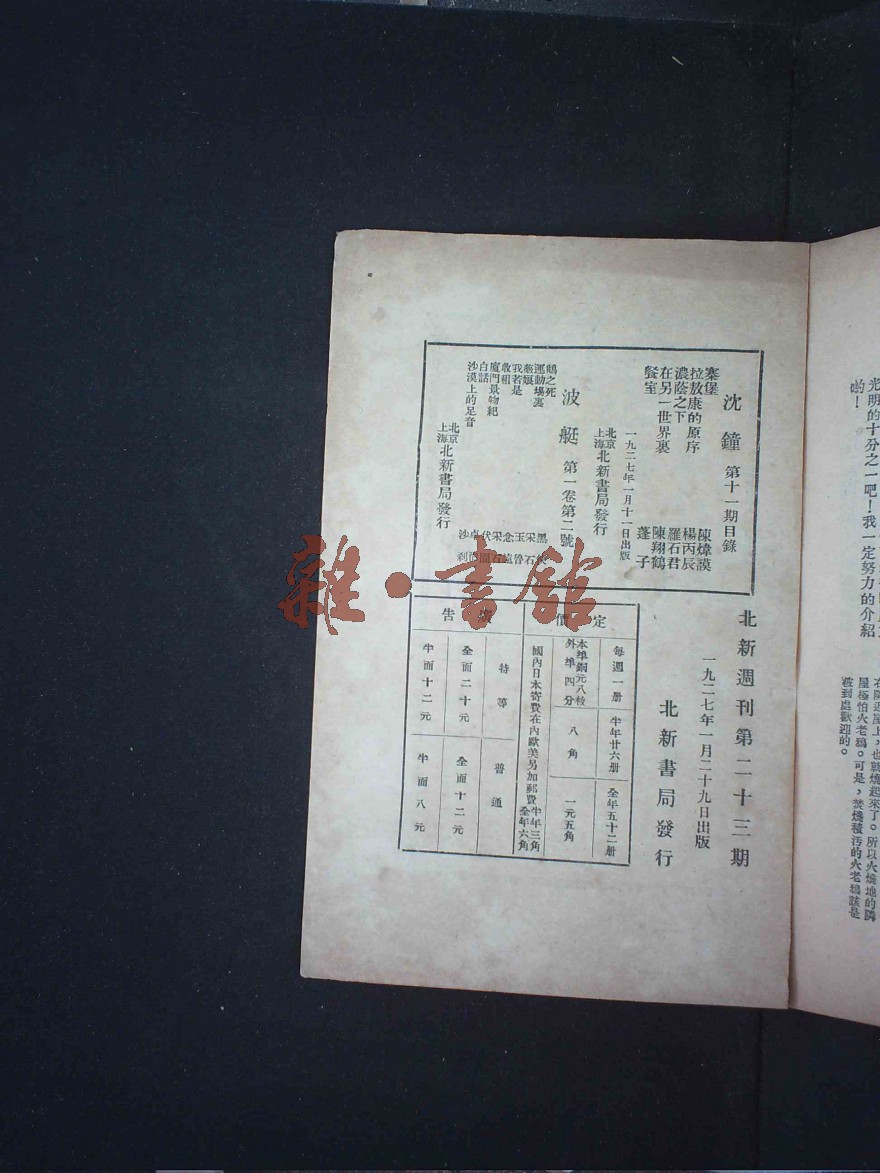 光明的十分之一吧！我一定努力的介紹
喲！
在隣近屋上，也就燒起來了。所以火燒地的隣
屋極怕火老鴉。可是，焚燒積汚的火老鴉該是
處到處歡迎的。
沈鐘 第十一期目錄
寨堡 陳煒謨
拉敖康的原序 楊丙辰
濃蔭之下 羅石君
在另一世界裏 陳翔鶴
餐室 蓬子
一九二七年一月十一日出版
北京
上海
北新書局發行
波艇 第一卷第二號
鴕之死
運動場裏
我若是
收租
廈門景物紀
白話
沙漠上的足音
北京
上海
北新書局發行
北新週刊第二十三期
一九二七年一月二十九日出版
北新書局發行
定價
每週一册 半年廿六册 全年五十二册
本埠銅元八枚
外埠四分
八角 一元五角
國內日本寄費在內歐美另加郵費
半年三角
全年六角
告
特等 普通
全面二十元 全面十二元
半面十二元 半面八元
雜·書館